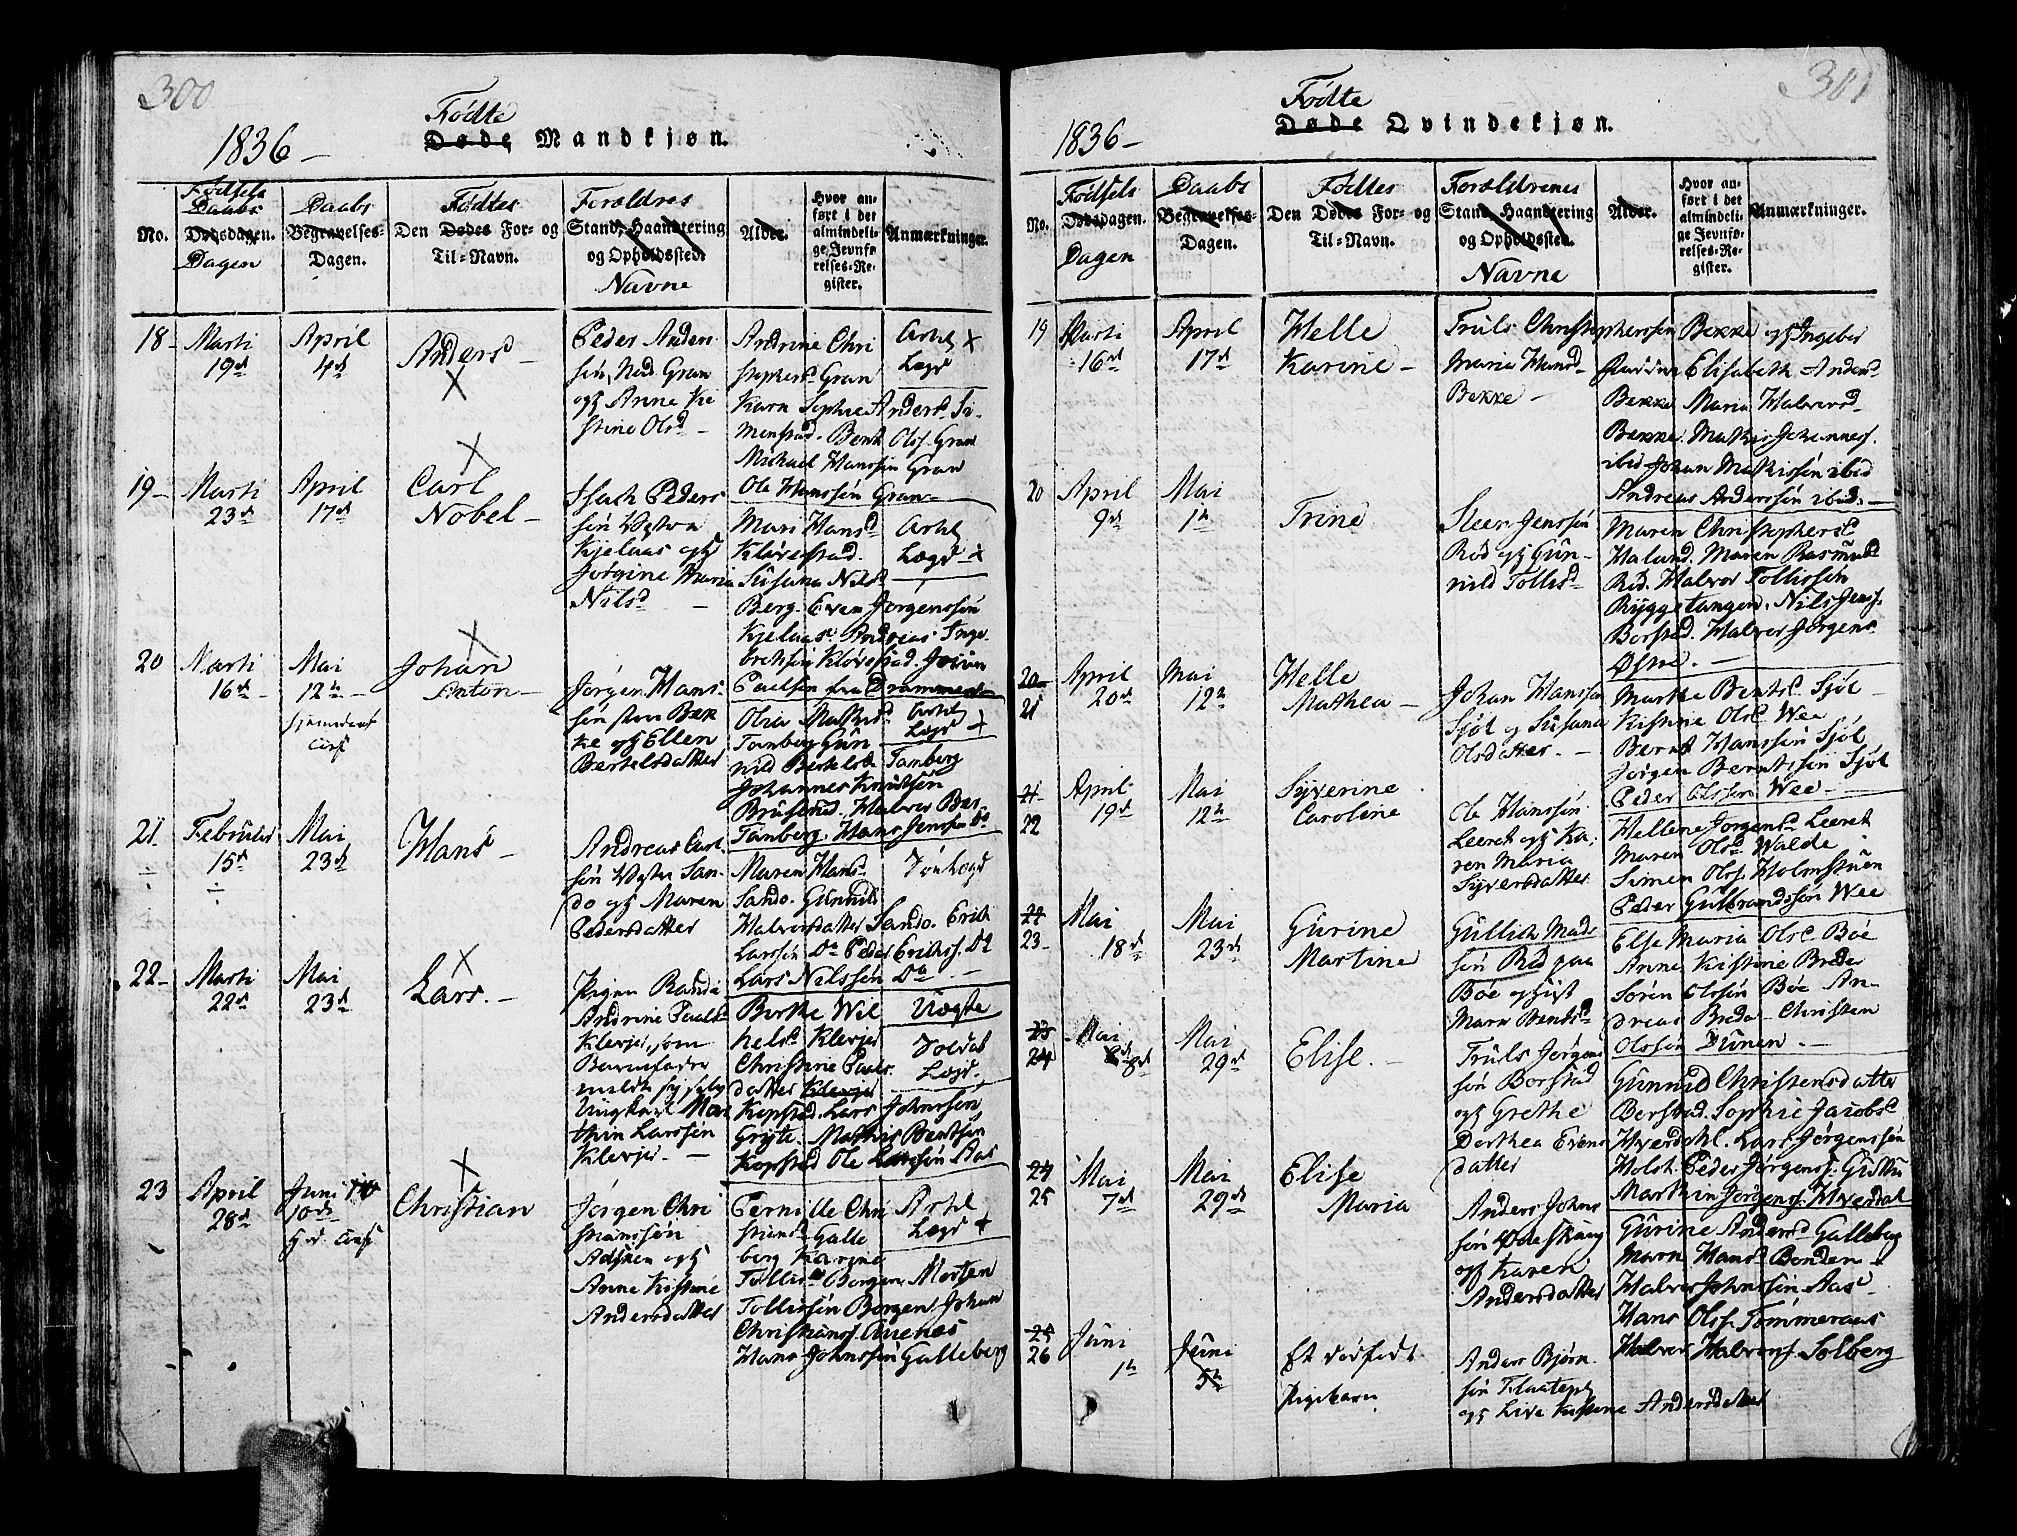 300
1836 –
Fødte
Døde Mandkjøn.
No.
Fødsels
Daabs
Dødsdagen.
Dagen
Daabs
Begravelses-
Dagen.
Fødtes
Den Dødes For- og
Til-Navn.
Forældres
Stand, Haandtering
og Opholdssted.
Navne
Alder.
Hvor an-
ført i det
almindeli-
ge Jevnfø-
relses-Re-
gister.
Anmærkninger.
18 –
Marti
19d
April
4d
Anders –
X
Peder Ander
sön, Gran
og Anne Ki
stine Olsd –
Andrine Chri
stophersd Gran
Karn Sophie Andersd Si-
menstad. Bent Olss. Gran
Michael Hanssön Gran
Ole Hanssön Gran –
Lægd
19 –
Marti
23d
April
17d
X
Carl
Nobel –
Isach Peders
sön
Kjelaas og
Jörgine Maria
Nilsd –
Mari Hansd
Kløverstad.
Susana Nilsd
Berg. Even Jörgenssön
Kjelaas. Andreas Inge
brektsön Kløverstad.
Paulsen fra Drammen –
Lægd +
20
Marti
16d –
Mai
12te –
X
Johan
Anton –
Jörgen Hans-
sön Bek
ke og Ellen
Bertelsdatter
Olea Mathisd
Tanberg Gun
nild Bertelsd Tanberg
Johannes Knudsön
Brusrud. Halvor
Tanberg. Hans Jenssön Do
Lægd +
21 –
Februar
15d
÷
Mai
23d
Hans –
Andreas Carl
sön San-
do og Maren
Pedersdatter
Maren Hansd
Sando. Gunnild
Halvorsdatter Sando. Erik
Larssön Do Peder Erikss. Do
Lars Nilssön Do –
22 –
Marti
22d
Mai
23d
X
Lars. –
Pigen Randi
Andrine Paulsd
Klevjer, som
Barnefader
Ungkarl Mar
thin Larssön
Klevjer. –
Berthe Wil
helsd Klevjer
Christine Pauls
datter Klevjer
Kopstad. Lars Johnssön
Gryte. Mathis Bentsön
Kopstad Ole Larssön Aas
Uægte
Lægd.
23
April
28d
Juni
10d
X
Christian
Jörgen Chri
stianssön
og
Anne Kistine
Andersdatter
Pernille Chri
stiansd Galle
berg Karine
Tollisd Borgen. Morten
Tollissön Borgen. Johan
Christianss.
Hans Johnssön Galleberg
Lægd +
301
1836 –
Fødte
Døde Qvindekjøn.
No.
Fødsels
Dødsdagen.
Dagen
Daabs
Begravelses-
Dagen.
Fødtes
Den Dødes For- og
Til-Navn.
Forældrenes
Stand, Haandtering
og Opholdssted.
Navne
Alder.
Hvor an-
ført i det
almindeli-
ge Jevnfø-
relses-Re-
gister.
Anmærkninger.
19
Marti
16d
April
17d
Helle
Karine –
Truls Christopherssön Bekke og Ingebor
Maria Hansd
Bekke –
Elisabeth Andersd
Bekke Maria Halvorsd
Bekke. Mathis Johanness.
ibid Johan Mathissön ibid
Andreas Anderssön ibid. –
20
April
9d
Mai
1te
Trine
Steen Jenssön
Röd og Gun-
nild Tollisd –
Maren Christophersd
Haland. Maren Rasmusd
Röd. Halvor Tollissön
Ryggetangen. Nils Jenss.
Borstad. Halvor Jörgens
20
21
April
20d
Mai
12te
Helle
Mathea –
Johan Hanssön
Sjöl og Susana
Olsdatter. –
Marthe Bentsd Sjöl –
Kistine Olsd Wee
Bernt Hanssön Sjöl
Jörgen Berntssön Sjöl
Peder Olssön Wee –
21
22
April
19d
Mai
12te
Syverine
Caroline
Ole Hanssön
Leeret og Ka-
ren Maria
Syversdatter
Hellene Jörgensd Leeret
Maren Olsd Walde
Simen Olss. Holmstuen
Peder Gulbrandssön Wee
22
23 –
Mai
18d
Mai
23d
Gurine
Martine
Gullich Mads
sön Röd paa
Böe og
Marn Bentsd
Else Maria Olsd Böe
Anne Kistine Breda
Sören Olssön Böe An-
dreas Breda – Christen
Olssön Dunen. –
23
24
Mai
8d
Mai
29d
Elise. –
Truls Jörgens
sön Borstad
og Grethe
Dorthea Evens
datter
Gunnild Christensdatter
Berstad. Sophie Jacobsd
Hverdahl. Lars Jörgenssön
Holst. Peder Jörgenss.
Marthin Jörgenss. Hverdal
24
25
Mai
7d
Mai
29d
Elise
Maria
Anders Johns
sön
og Karen
Andersdatter
Gurine Andersd Galleberg
Marn Hansd Benden –
Halvor Johnssön Aas
Hans Olss. Tömmeraas
Halvor Halvorss. Solberg
25
26
Juni
1te
Juni
5te
Et dödfödt
Pigebarn
Anders Björn
sön
og Live Kistine Andersdatter